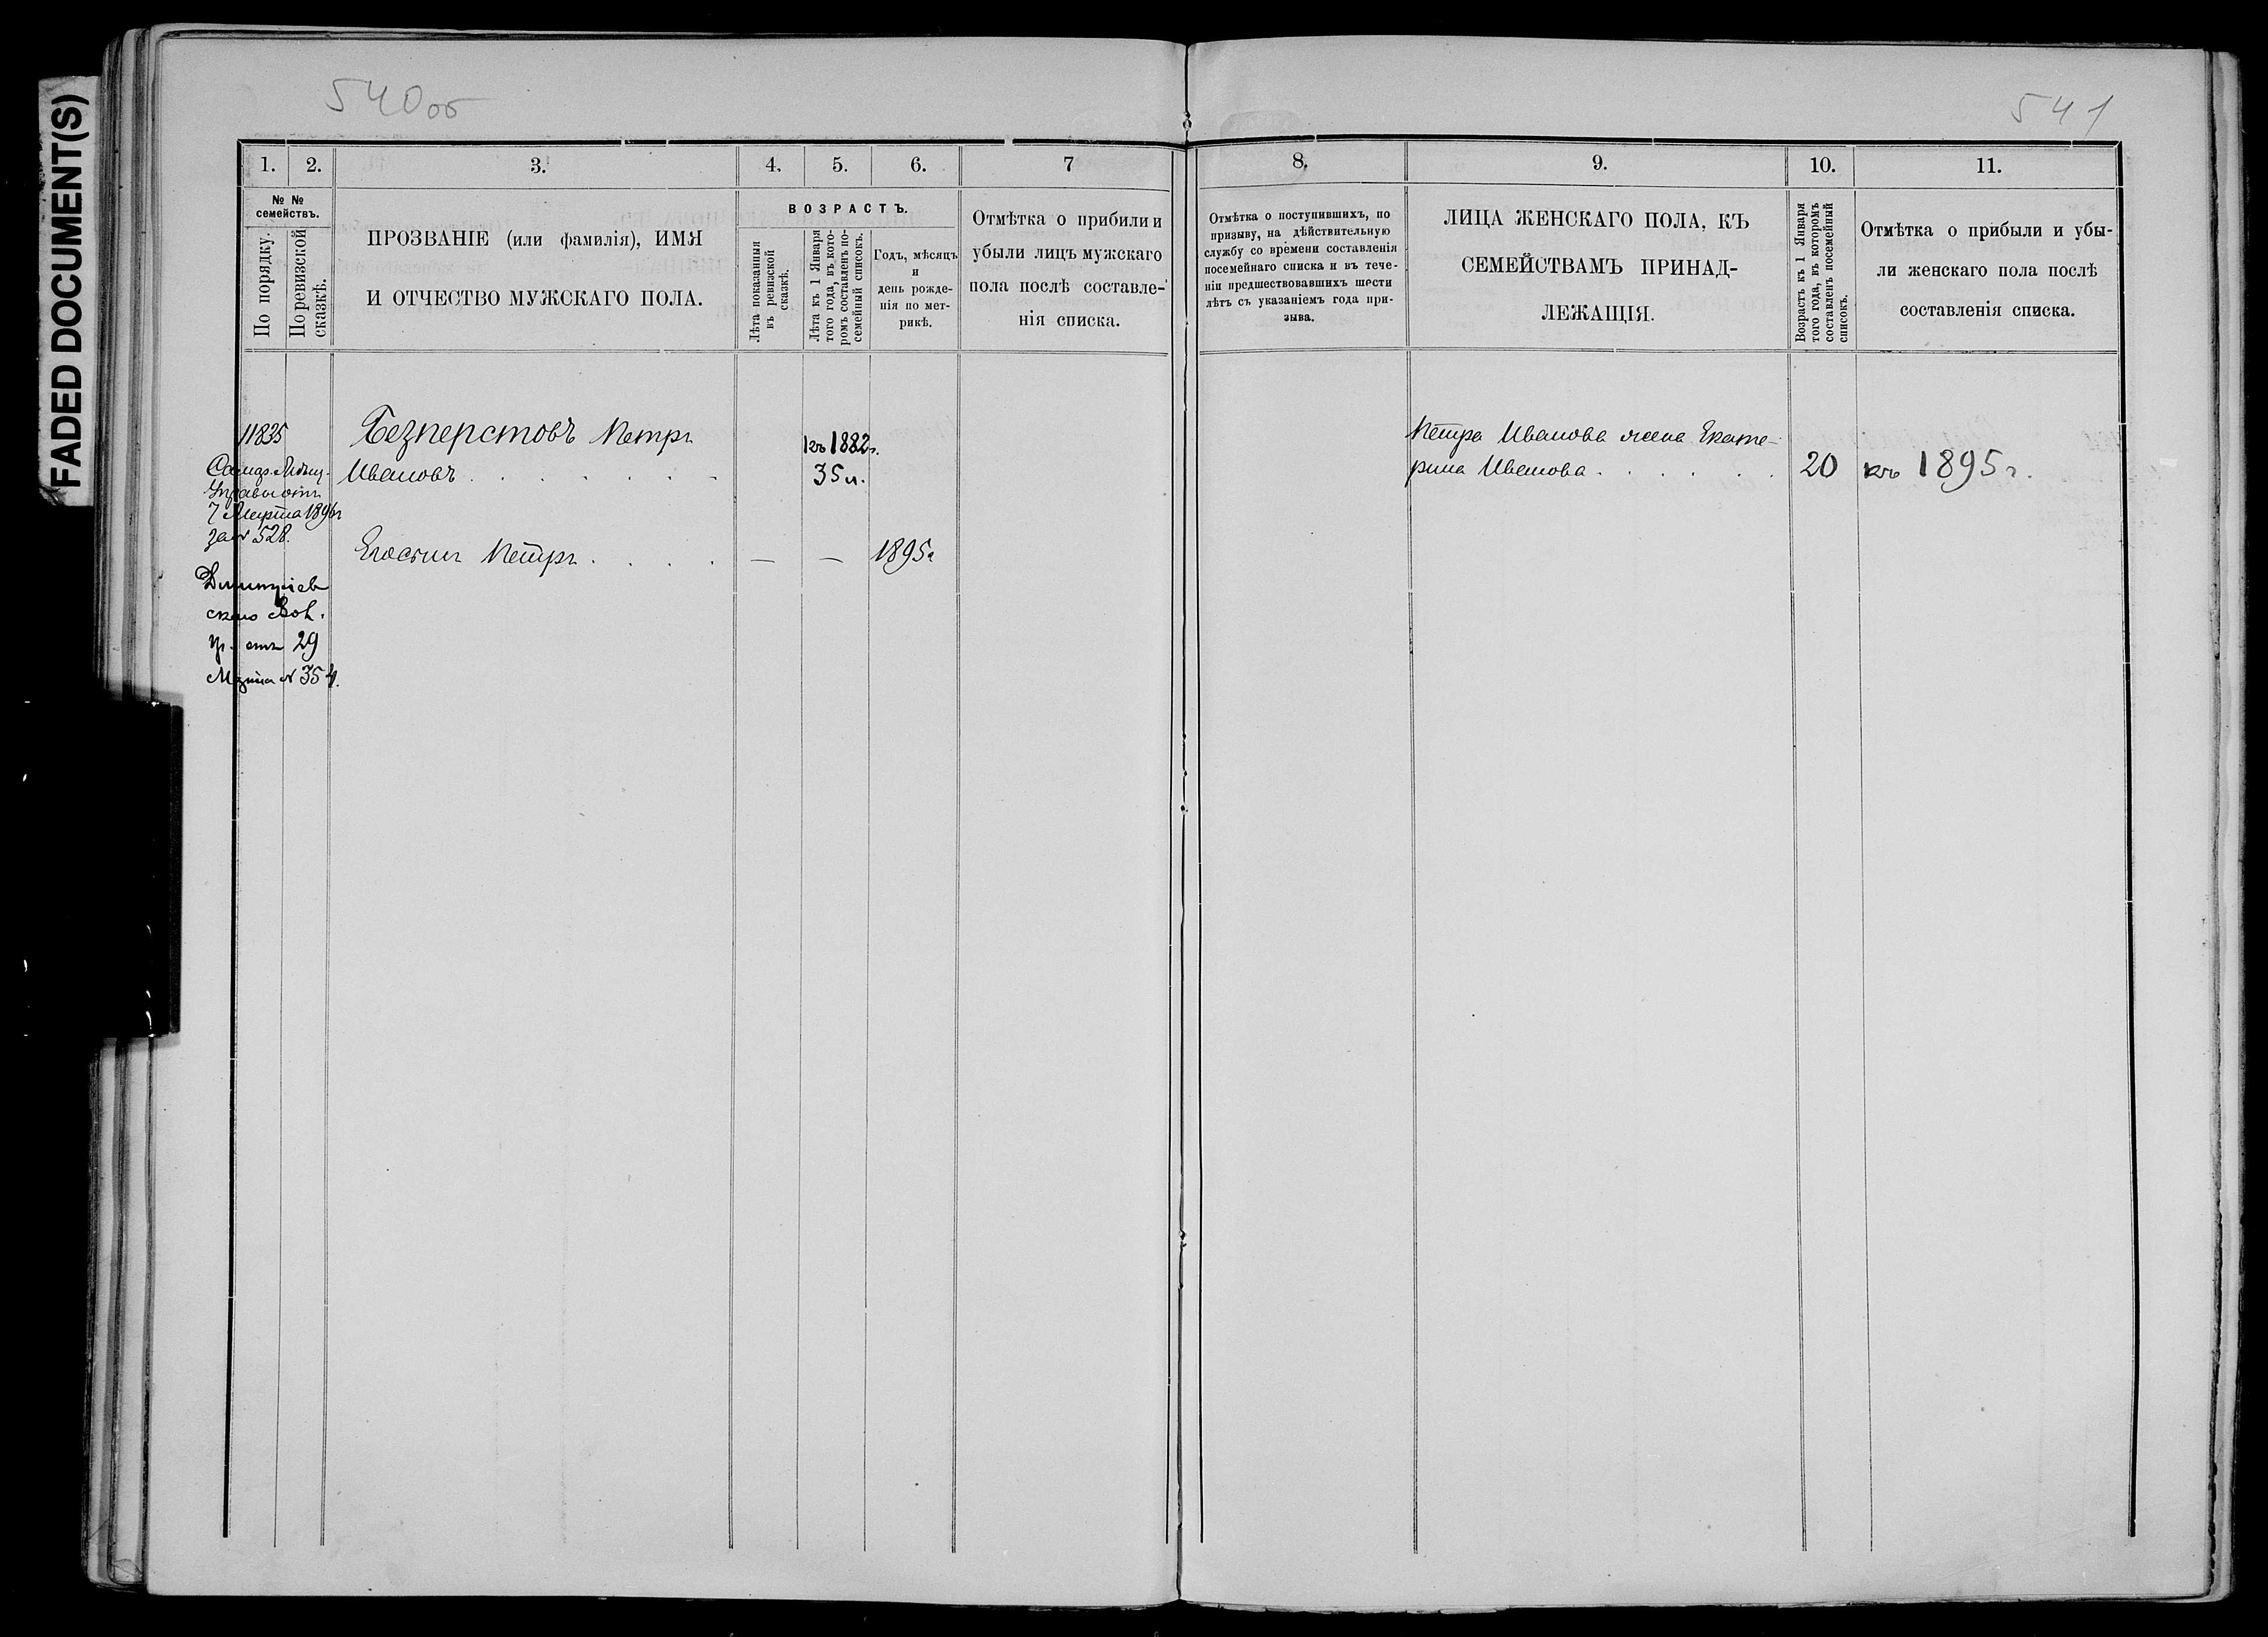 FADED DOCUMENT(S)
540об
541
1.
2.
3.
4.
5.
6.
7
№ №
семействъ.
По порядку.
По ревизской
сказкѣ.
ПРОЗВАНІЕ (или фамилія), ИМЯ
И ОТЧЕСТВО МУЖСКАГО ПОЛА.
ВОЗРАСТЪ.
Лѣта показанныя
въ ревизской
сказкѣ.
Лѣта къ 1 Января
того года, въ кото-
ромъ составленъ по-
семейный списокъ.
Годъ, мѣсяцъ
и
день рожде-
нія по мет-
рикѣ.
Отмѣтка о прибыли и
убыли лицъ мужскаго
пола послѣ составле-
нія списка.
11835
7 Марта 1896г
за № 528.
Дмитріев
скаго Вол.
пр. отъ 29
Марта № 354.
Безперстовъ Петръ
Ивановъ . . . . . . .
къ 1882г.
35 л.
Петръ . . . .
—
—
1895г
8.
9.
10.
11.
Отмѣтка о поступившихъ, по
призыву, на дѣйствительную
службу со времени составленія
посемейнаго списка и въ тече-
ніи предшествовавшихъ шести
лѣтъ съ указаніемъ года при-
зыва.
ЛИЦА ЖЕНСКАГО ПОЛА, КЪ
СЕМЕЙСТВАМЪ ПРИНАД-
ЛЕЖАЩІЯ.
Возрастъ къ 1 Января
того года, въ которомъ
составленъ посемейный
списокъ.
Отмѣтка о прибыли и убы-
ли женскаго пола послѣ
составленія списка.
Петра Иванова жена Екате-
рина Иванова . . . . . .
20
къ 1895 г.